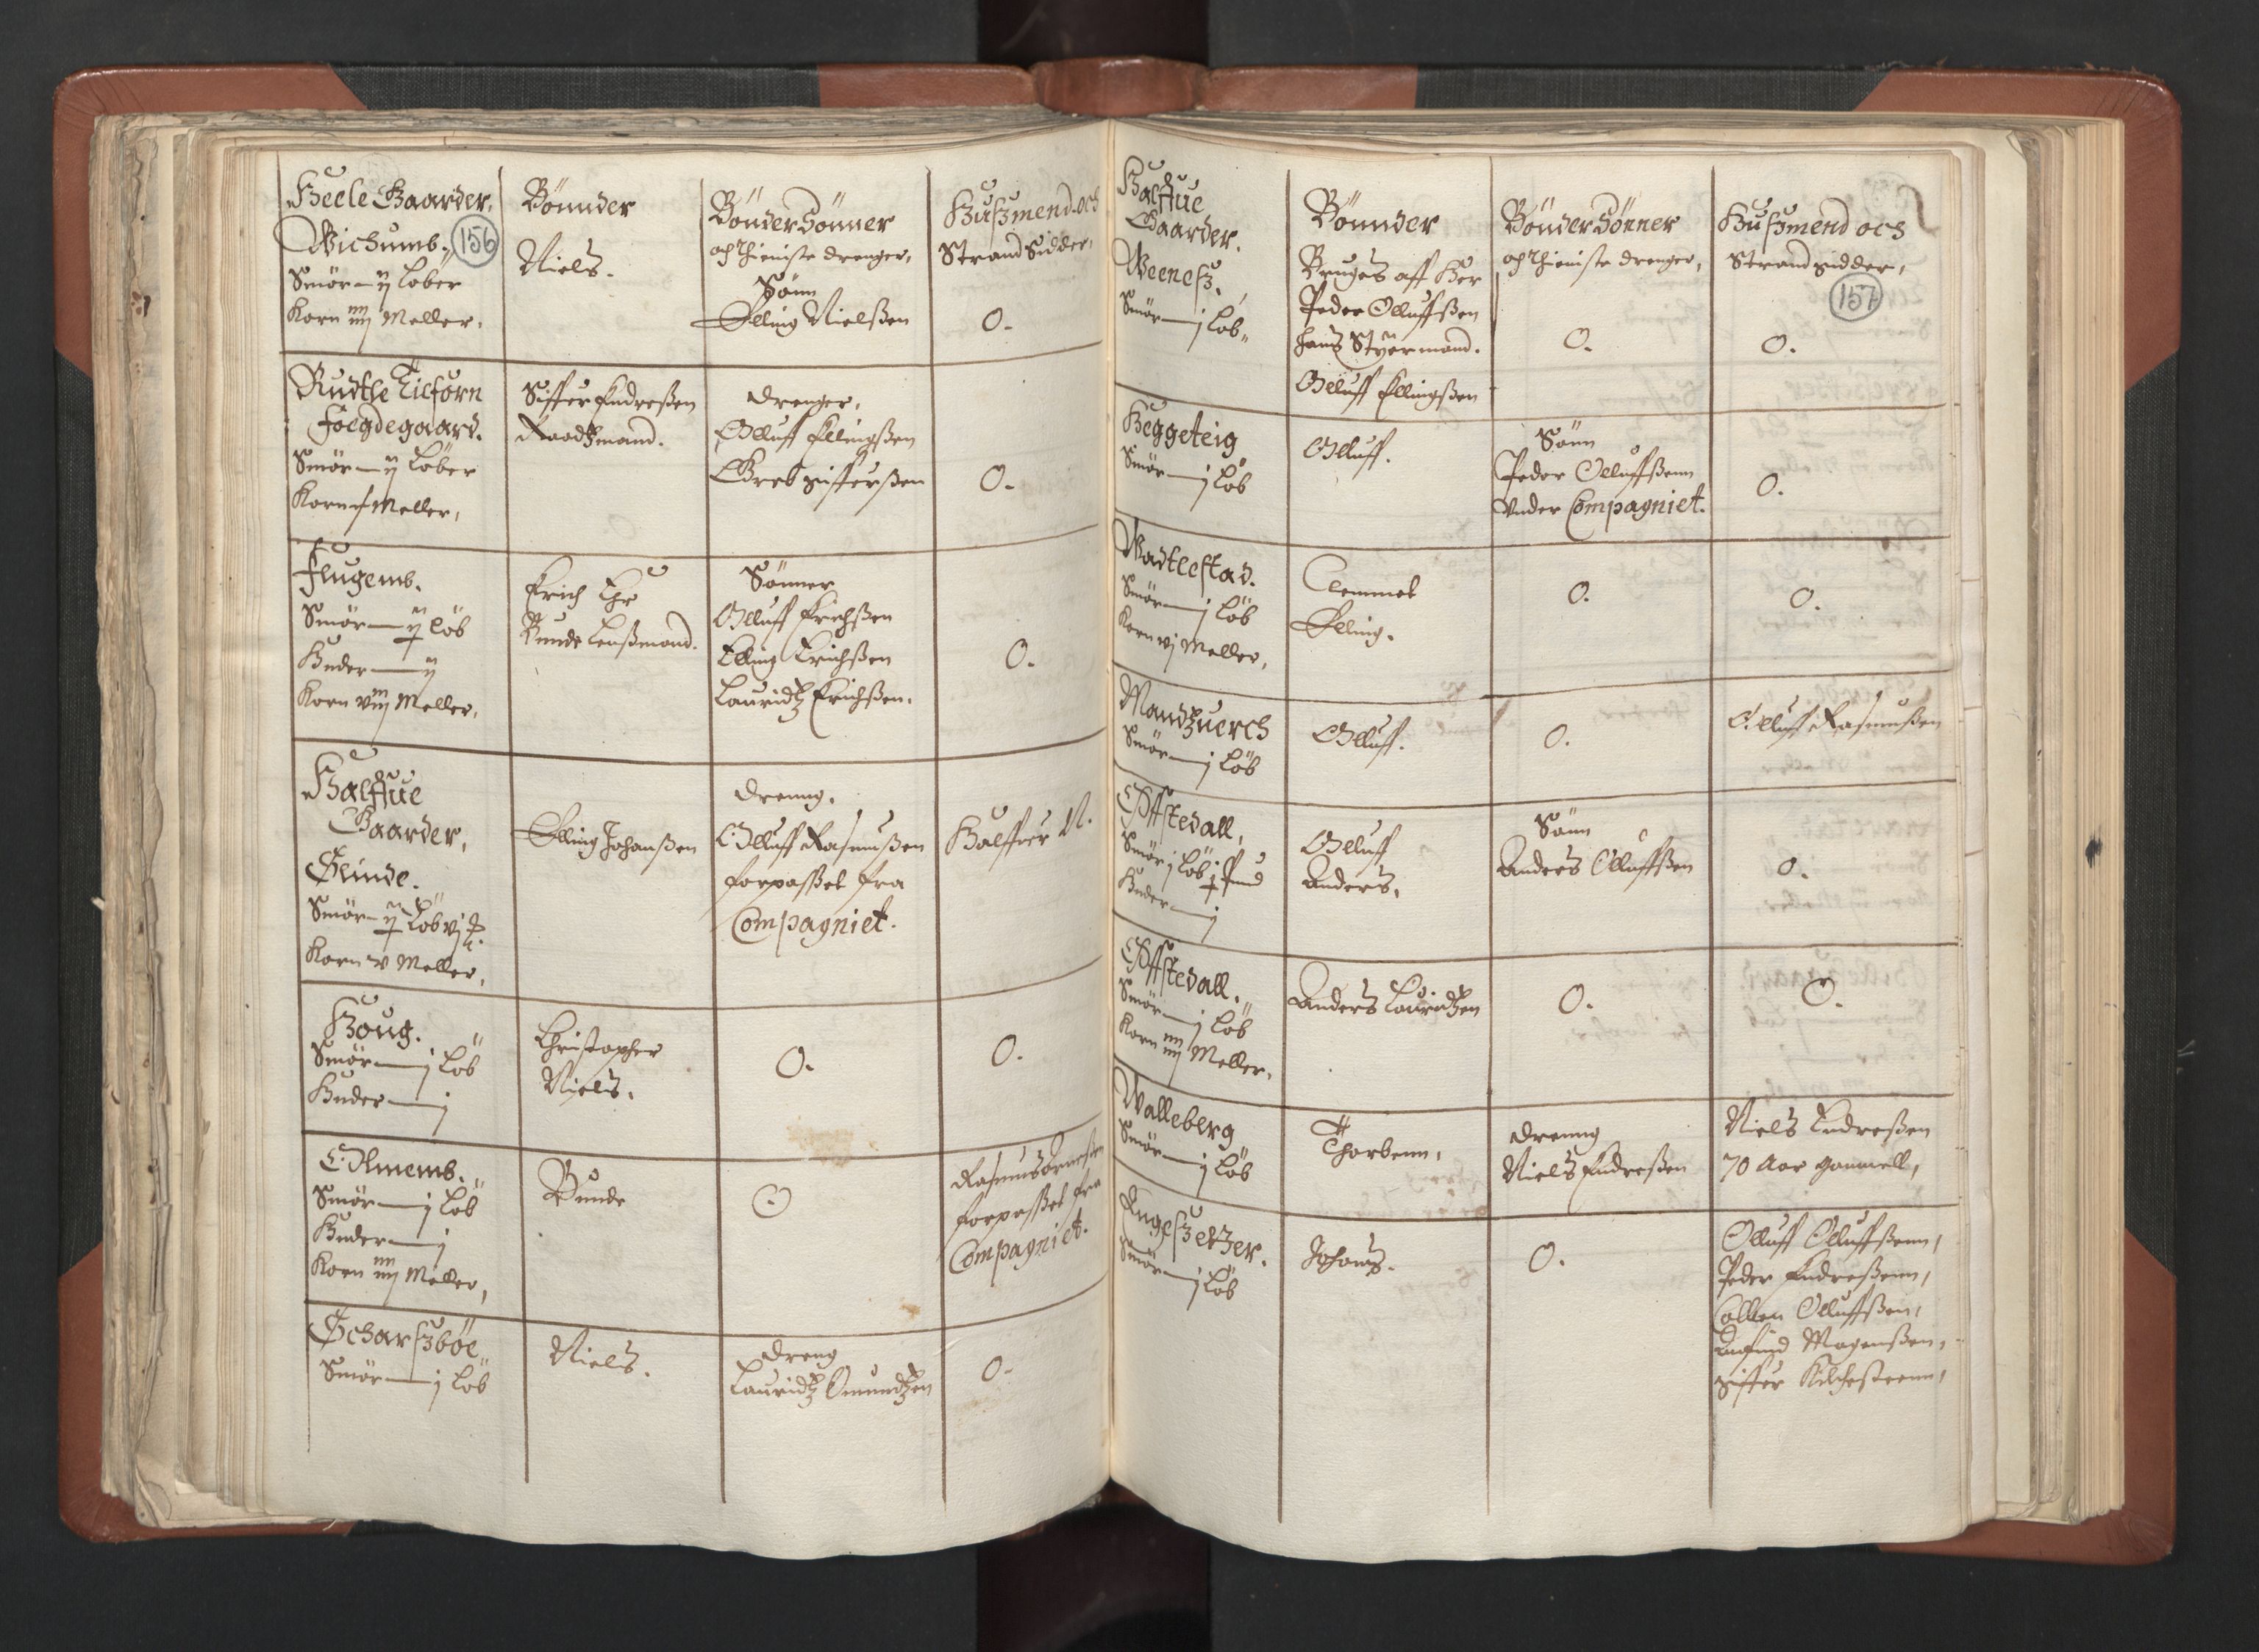 Heele Gaarder.
Wichumb. 156
Smör - ij Löber
Korn iiij Meller.
Bönnder
Niels.
Bönder Sönner
och Thieniste drenger,
Sönn
Elling Nielßen
Huszmend och
Strand Sidder,
0.
Rudtle Tilforn
Foegdegaard.
Smör - ij Löber
Korn Meller,
Siffuer Endreßen
Raadtzmand.
drenger,
Olluff Ellingßen
Bret Siffuerßen
0.
Flugemb.
Smör - ij Löb
Huder - ij
Korn viij Meller,
Erich Ehr
Bunde Lenßmand.
Sönner
Olluff Erichßen
Elling Erichßen
Lauridtz Erichßen.
0.
Halffue
Gaarder,
Slinde.
Smör - ij Löb vj
Korn v Meller,
Elling Johanßen
dreng.
Olluff Rasmußen
forpaßet fra
Compagniet.
Halffuer N.
Houg.
Smör - j Löb
Huder - j
Christopher
Niels.
0.
0.
Olmemb.
Smör - j Löb
Huder - j
Korn iiij Meller,
Bunde
0
Rasmus
forpaßet fra
Compagniet.
Scharszböe
Smör - j Löb
Niels.
dreng
Lauridtz Omundtzen
0.
Halffue
Gaarder.
Weenesz.
Smör - j Löb
Bönnder
Bruges aff Her
Peder Olluffßen
hans Styermand.
Olluff Ellingßen
Bönder Sönner
och Thieniste drenger,
0.
Huszmend och
Strand sidder,
157
0.
Heggeteig
Smör - j Löb
Olluff.
Sönn
Peder Olluffßenn
Vnder Compagniet.
0.
Wadtlestad.
Smör - j Löb
Korn vj Meller,
Clemmet
Elling.
0.
0.
Mandtzuerch
Smör - j Löb
Olluff.
0.
Olluff Rasmußen
Offstedall,
Smör j Löb j Pund
Huder - j
Olluff
Anders.
Sönn
Anders Olluffßen
0.
Offstedall.
Smör - j Löb
Korn iiij Meller.
Anders Lauridtzen
0.
0.
Walleberg
Smör - j Löb
Thorbenn,
drenng
Niels Endreßen
Niels Endreßen
70 Aar gammell,
Engeszetzer.
Smör - j Löb
Johans.
0.
Olluff Olluffßenn,
Peder Endreßenn,
Collen Olluffßen,
Anfind Mogenßen,
Siffuer